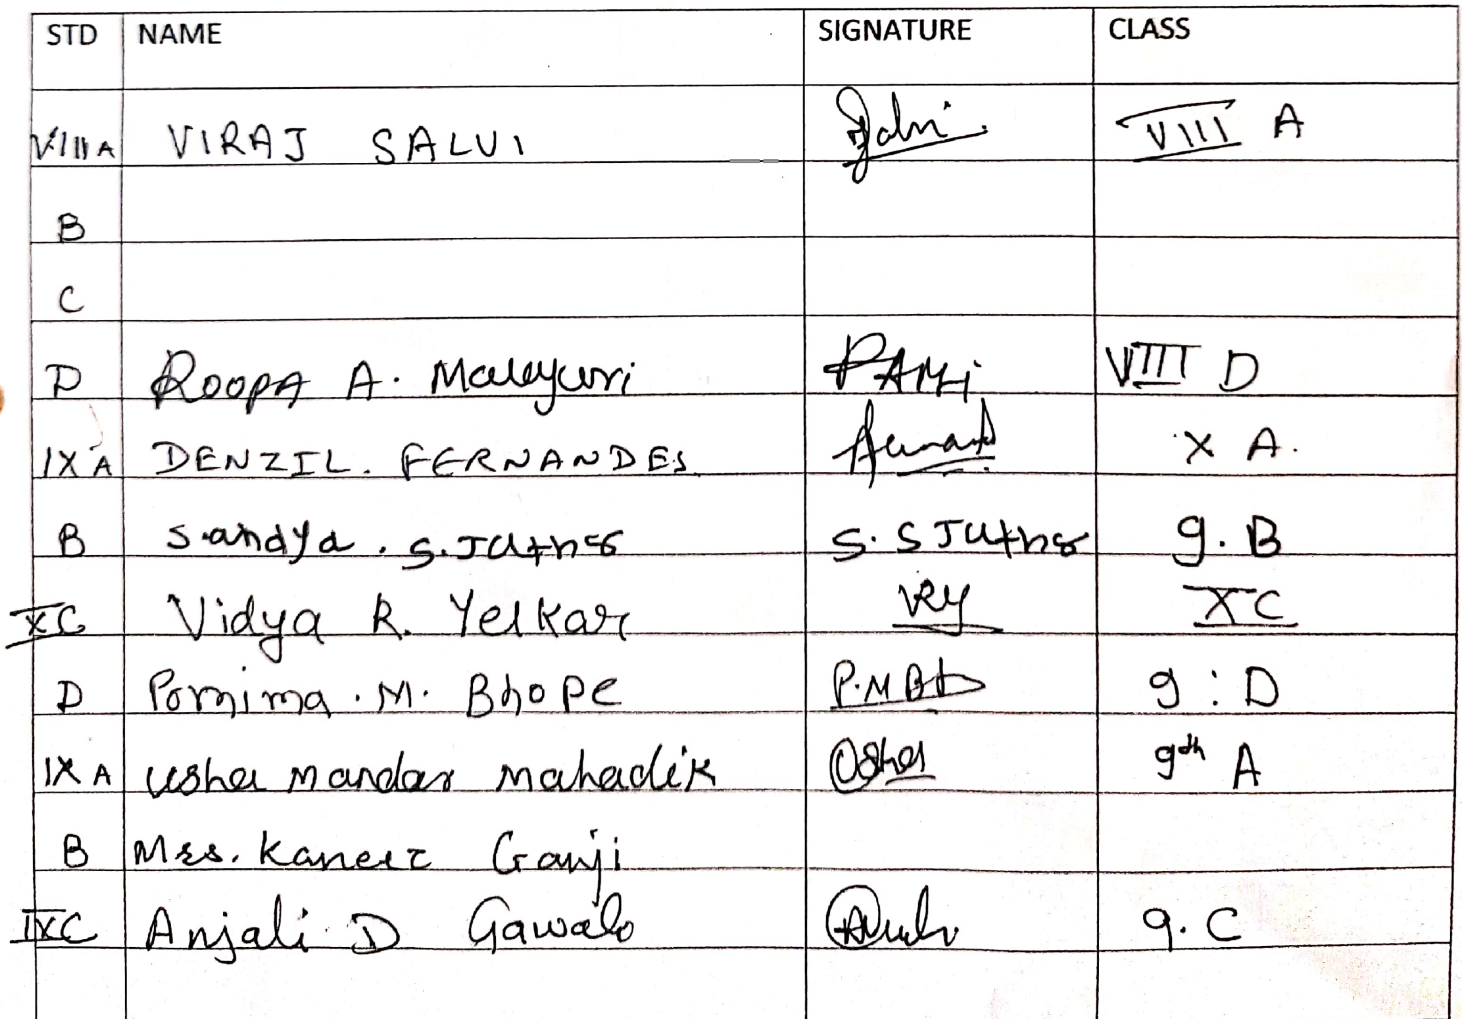 STD NAME SIGNATURE CLASS
VIII A VIRAJ SALVI VIII A
B
C
D ROOPA A. VIII D
IX A DENZIL. FERNANDES X A.
B sandya . S. S. S 9. B
XC Vidya R. Yelkar VRY XC
D Pornima . M. Bhope P.M 9 : D
IX A Usha Mandar Mahadik Usha 9th A
B Mrs. Kaneez Ganji
IXC Anjali D Gawalo 9. C